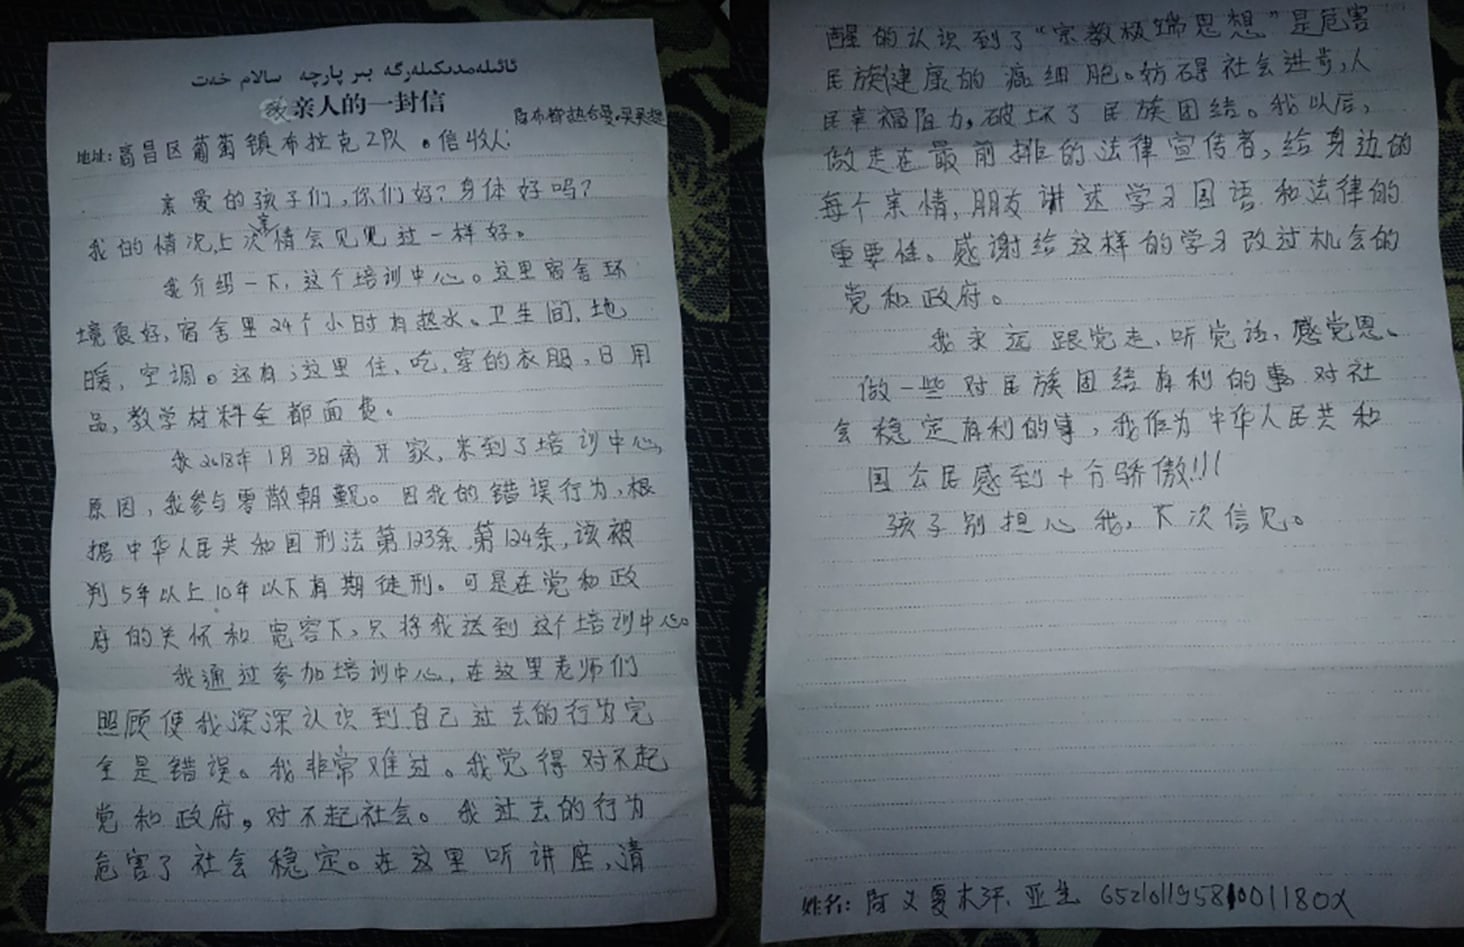 ئائىلەمدىكىلەرگە بىر پارچە سالام خەت
亲人的一封信
阿布都热合曼·买买提
地址:高昌区葡萄镇布拉克2队。信收人:
亲爱的孩子们,你们好?身体好吗?
我的情况,上次亲情会见见过一样好。
我介绍一下,这个培训中心。这里宿舍环
境良好,宿舍里24个小时有热水。卫生间,地
暖,空调。还有;这里住、吃、穿的衣服,日用
品,教学材料全都面费。
我2018年1月3日离开家,来到了培训中心,
原因,我参与零散朝觐。因我的错误行为,根
据中华人民共和国刑法第123条,第124条,该被
判5年以上10年以下有期徒刑。可是在党和政
府的关怀和宽容下,只将我送到这个培训中心。
我通过参加培训中心,在这里老师们
照顾使我深深认识到自己过去的行为完
全是错误。我非常难过。我觉得对不起
党和政府,对不起社会。我过去的行为
危害了社会稳定。在这里听讲座,清
醒的认识到了“宗教极端思想”是危害
民族健康的癌细胞。妨碍社会进步,人
民幸福阻力,破坏了民族团结。我以后,
做走在最前排的法律宣传者,给身边的
每个亲情,朋友讲述学习国语和法律的
重要性。感谢给这样的学习改过机会的
党和政府。
我永远跟党走、听党话,感党恩、
做一些对民族团结有利的事对社
会稳定有利的事,我作为中华人民共和
国公民感到十分骄傲!!!
孩子别担心我,下次信见。
姓名:阿义夏木汗·亚生